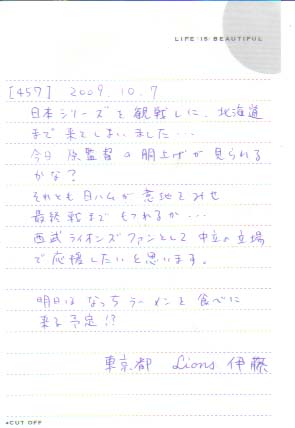 LIFE IS BEAUTIFUL
[457] 2009.10.7
日本シリーズを観戦しに、北海道
まで来てしまいました...
今日 原監督の胴上げが見られる
かな?
それとも日ハムが意地をみせ
最終戦までもつれるか...
西武ライオンズファンとして中立の立場
で応援したいと思います。
明日は なっちラーメンを食べに
来る予定!?
東京都 Lions 伊藤
CUT OFF